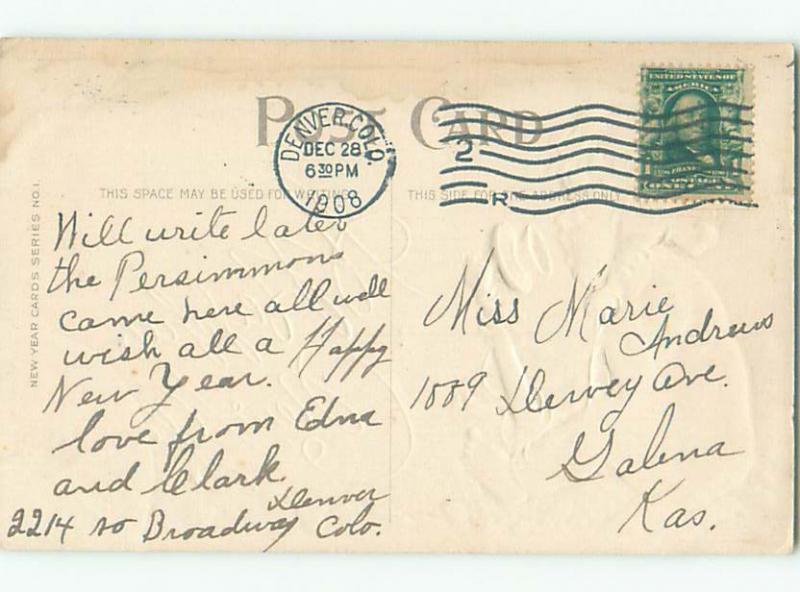 POST CARD
DENVER, COLO.
DEC 28
6 30 PM
1908
2
R
UNITED STATES OF
AMERICA
THIS SPACE MAY BE USED FOR WRITING
THIS SIDE FOR THE ADDRESS ONLY
NEW YEAR CARDS SERIES NO. 1.
Will write later
the Persimmons
came here all well
wish all a Happy
New Year.
love from Edna
and Clark
2214 so Broadway Denver Colo.
Miss Marie
Andrews
Ave.
Galena
Kas.